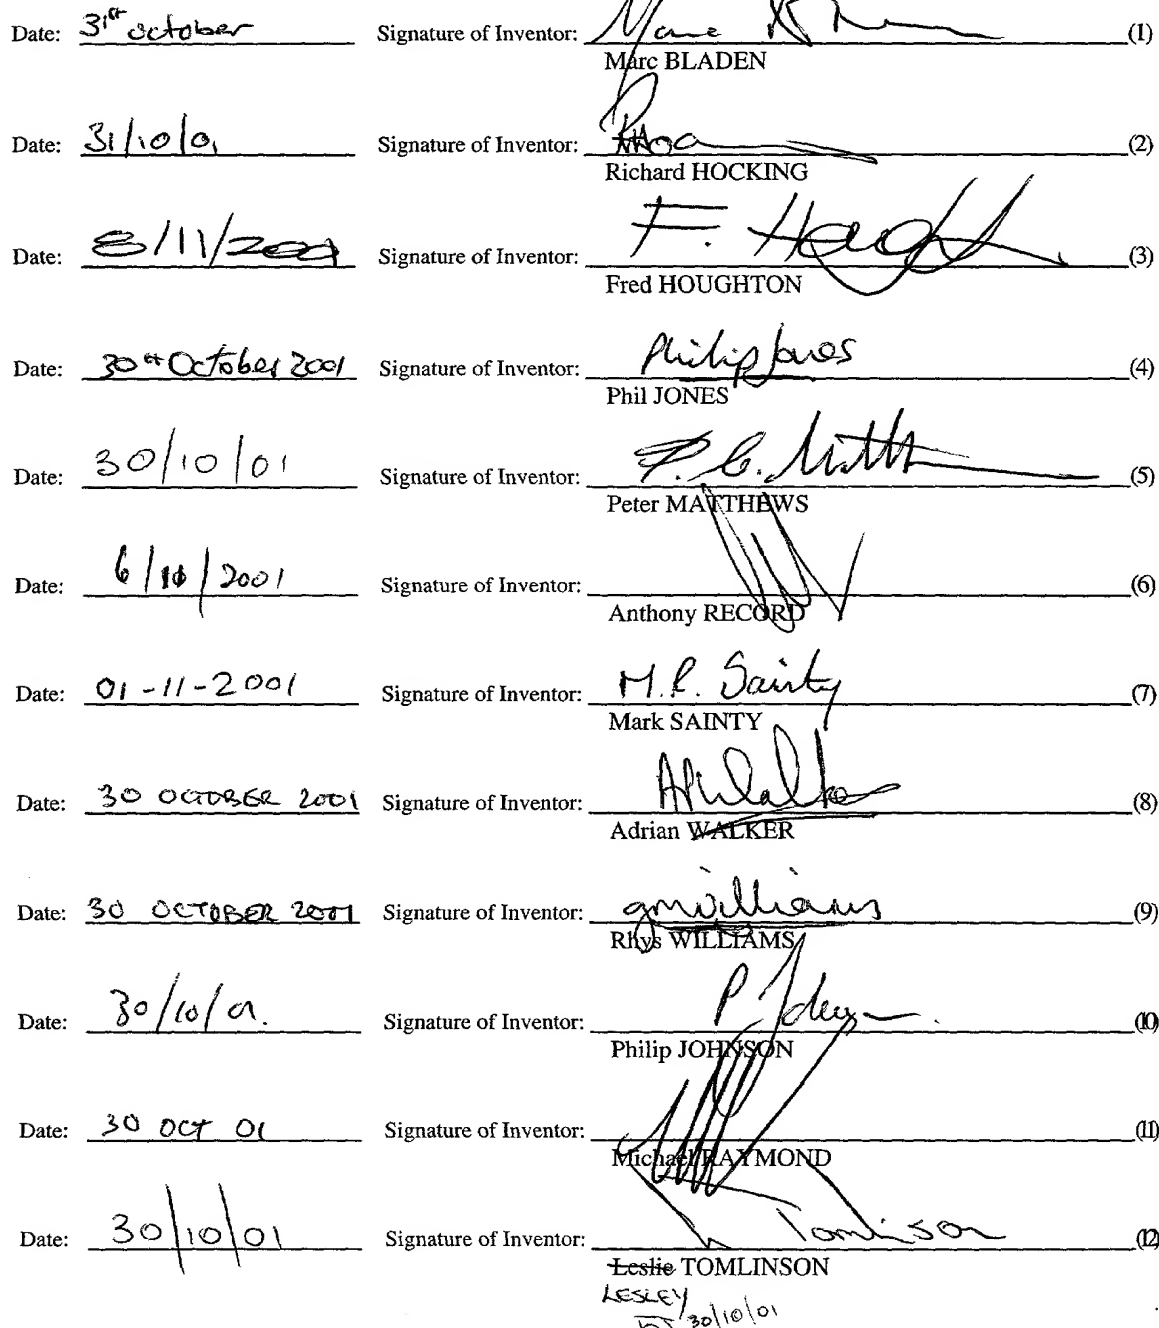 Date: 31st october Signature of Inventor: Marc (1)
Marc BLADEN
Date: 31/10/01 Signature of Inventor: (2)
Richard HOCKING
Date: 8/11/2001 Signature of Inventor: F. Hough (3)
Fred HOUGHTON
Date: 30th October 2001 Signature of Inventor: Philip Jones (4)
Phil JONES
Date: 30/10/01 Signature of Inventor: P. G. Matth (5)
Peter MATTHEWS
Date: 6/ /2001 Signature of Inventor: (6)
Anthony RECORD
Date: 01-11-2001 Signature of Inventor: M.P. Sainty (7)
Mark SAINTY
Date: 30 OCTOBER 2001 Signature of Inventor: APWalker (8)
Adrian WALKER
Date: 30 OCTOBER 2001 Signature of Inventor: gmwilliams (9)
Rhys WILLIAMS
Date: 30/10/01. Signature of Inventor: P. (10)
Philip JOHNSON
Date: 30 OCT 01 Signature of Inventor: (11)
Michael RAYMOND
Date: 30/10/01 Signature of Inventor: Tomlinson (12)
Leslie TOMLINSON
LESLEY
30/10/01